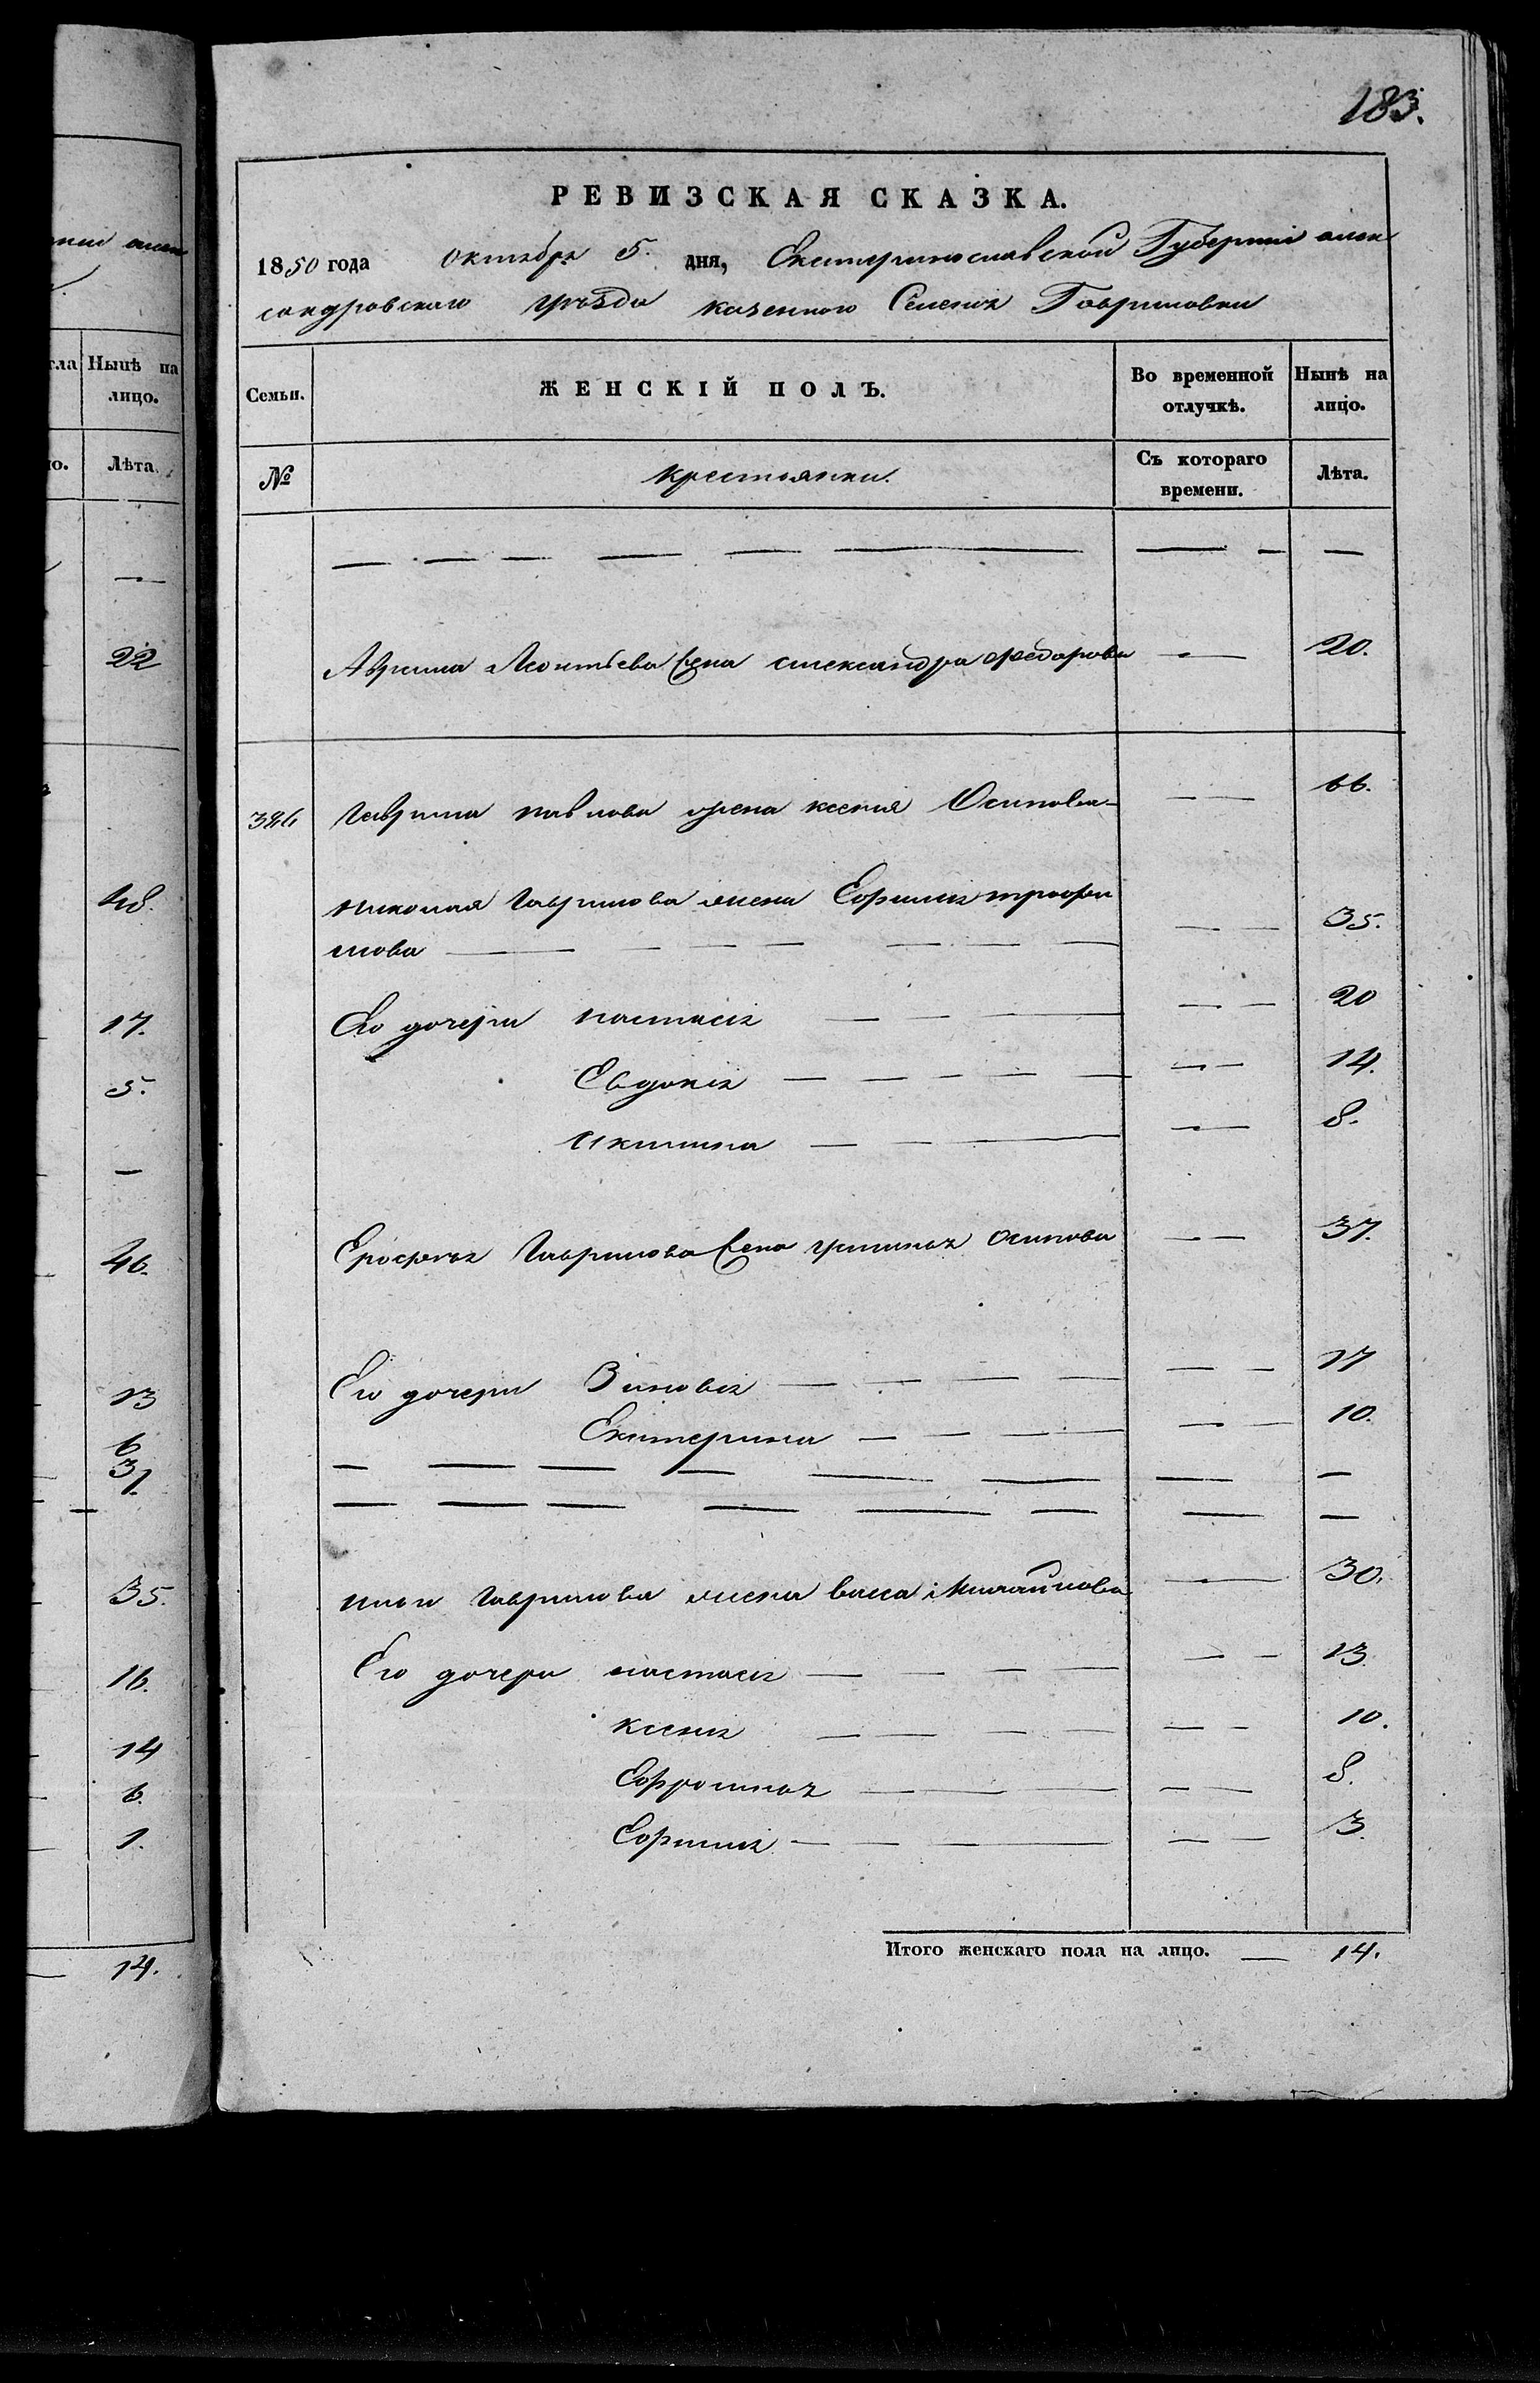 183.
РЕВИЗСКАЯ СКАЗКА.
1850 года октября 5. дня, Екатеринославской Губерніи алек
сандровскаго уѣзда казенного Селенія Гавриловки
Семьи.
ЖЕНСКІЙ ПОЛЪ.
Во временной отлучкѣ.
Нынѣ на лицо.
№
крестьянки.
Съ котораго времени.
Лѣта.
— — — — — — — — —
Леонтьева жена александра Федорова — 20.
386 Гаврила павлова жена ксенія Осипова — 66.
николая Гаврилова жена Ефимія трофи
мова — 35.
Его дочери настасія — 20
Евдокія — 14.
Акилина — 8.
Ерофея Гаврилова жена устинья Осипова — 37.
Его дочери Зиновія — 17
Екатерина — 10.
— — — — — — — —
— — — — — — — —
ильи Гаврилова жена васса Михайлова — 30.
Его дочери настасія — 13.
ксенія — 10.
Ефросинья — 8.
Ефимія — 3.
Итого женскаго пола на лицо. — 14.
Нынѣ на
лицо.
Лѣта.
—
22
48.
17.
5.
—
46.
13
6
37.
—
35.
16.
14
6.
1.
14.